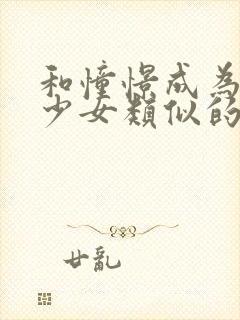 和憧憬成為
少女類似的
廿亂